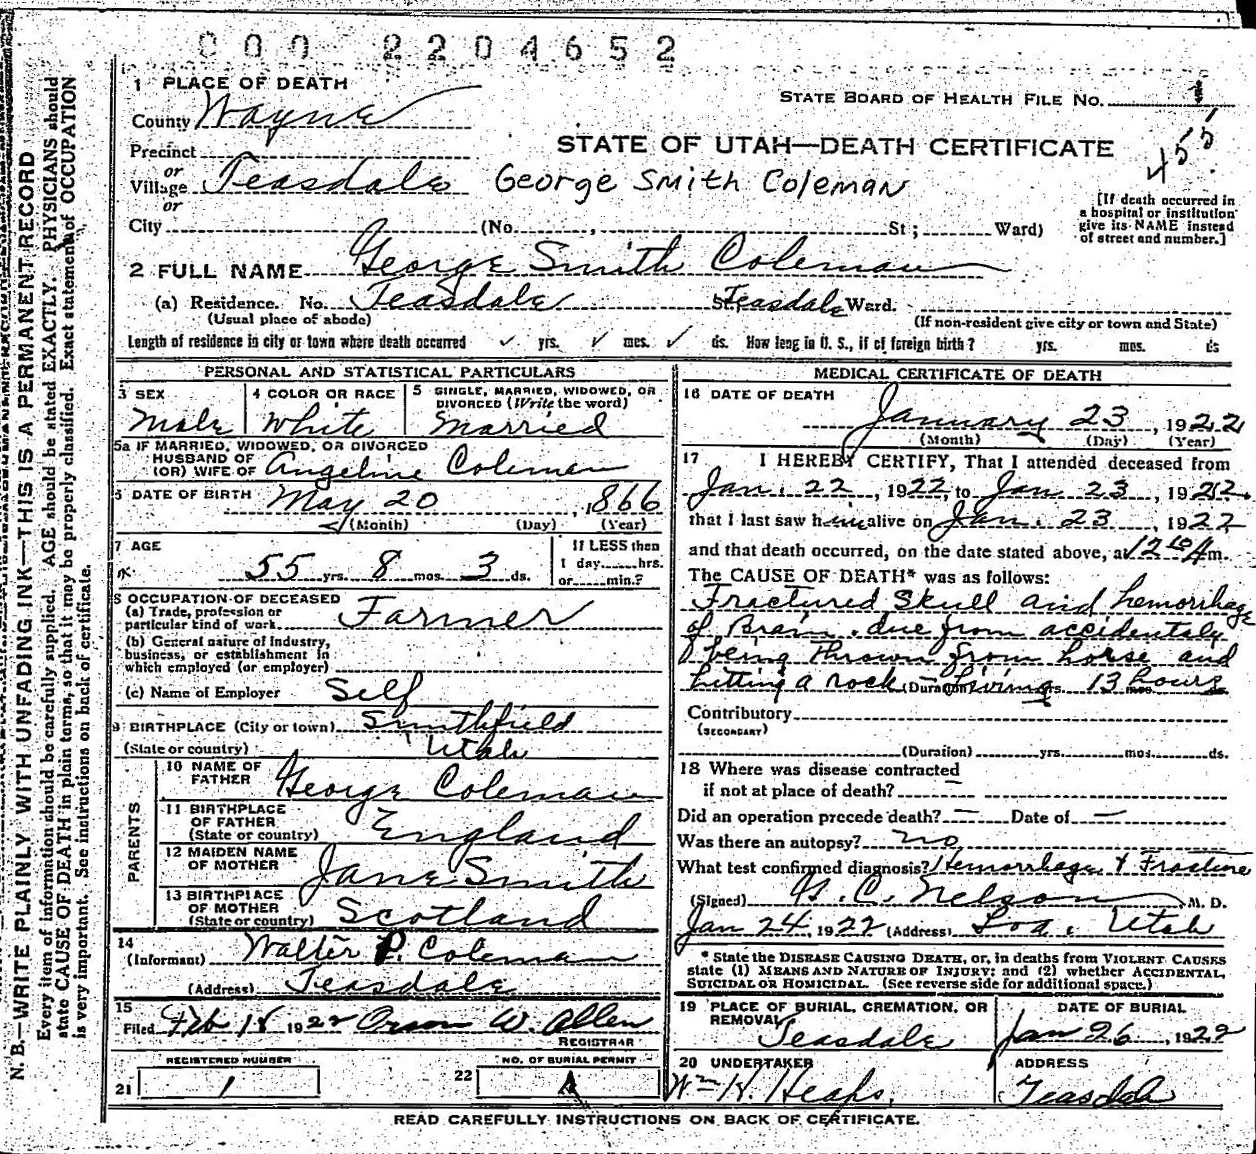 000 2204652
1 PLACE OF DEATH
STATE BOARD OF HEALTH FILE No. 1
County Wayne
455
STATE OF UTAH—DEATH CERTIFICATE
Precinct
or
Village Teasdale George Smith Coleman
or
[If death occurred in a hospital or institution give its NAME instead of street and number.]
City (No. , St; Ward)
2 FULL NAME George Smith Coleman
(a) Residence. No. Teasdale St. Teasdale Ward.
(Usual place of abode) (If non-resident give city or town and State)
Length of residence in city or town where death occurred ✓ yrs. ✓ mos. ✓ ds. How long in U. S., if of foreign birth? yrs. mos. ds
PERSONAL AND STATISTICAL PARTICULARS
3 SEX
Male
4 COLOR OR RACE
White
5 SINGLE, MARRIED, WIDOWED, OR DIVORCED (Write the word)
Married
5a IF MARRIED, WIDOWED, OR DIVORCED
HUSBAND OF
(OR) WIFE OF Angeline Coleman
6 DATE OF BIRTH May 20, 1866
(Month) (Day) (Year)
7 AGE
55 yrs. 8 mos. 3 ds.
If LESS then
1 day hrs.
or min.?
8 OCCUPATION OF DECEASED
(a) Trade, profession or particular kind of work Farmer
(b) General nature of industry, business, or establishment in which employed (or employer)
(c) Name of Employer Self
9 BIRTHPLACE (City or town) Smithfield
(State or country) Utah
PARENTS
10 NAME OF FATHER George Coleman
11 BIRTHPLACE OF FATHER
(State or country) England
12 MAIDEN NAME OF MOTHER Jane Smith
13 BIRTHPLACE OF MOTHER
(State or country) Scotland
14
(Informant) Walter P. Coleman
(Address) Teasdale
15
Filed Feb 18 1922 Orson W. Allen
REGISTRAR
REGISTERED NUMBER
21 1
NO. OF BURIAL PERMIT
22 1
MEDICAL CERTIFICATE OF DEATH
16 DATE OF DEATH
January 23, 1922
(Month) (Day) (Year)
17 I HEREBY CERTIFY, That I attended deceased from
Jan. 22, 1922, to Jan 23, 1922.
that I last saw him alive on Jan. 23, 1922
and that death occurred, on the date stated above, at 12 10 A m.
The CAUSE OF DEATH* was as follows:
Fractured Skull and hemorrhage
of Brain. due from accidentaly
being thrown from horse and
hitting a rock (Duration) Living yrs. 13 hours mos.
Contributory
(SECONDARY)
(Duration) yrs. mos. ds.
18 Where was disease contracted
if not at place of death? —
Did an operation precede death? — Date of —
Was there an autopsy? no
What test confirmed diagnosis? Hemorrhage & Fracture
(Signed) C. Nelson M. D.
Jan 24, 1922 (Address) Loa, Utah
* State the DISEASE CAUSING DEATH, or, in deaths from VIOLENT CAUSES
state (1) MEANS AND NATURE OF INJURY; and (2) whether ACCIDENTAL,
SUICIDAL OR HOMICIDAL. (See reverse side for additional space.)
19 PLACE OF BURIAL, CREMATION, OR REMOVAL
Teasdale
DATE OF BURIAL
Jan 26, 1922
20 UNDERTAKER
Wm H. Heaps.
ADDRESS
Teasdale
READ CAREFULLY INSTRUCTIONS ON BACK OF CERTIFICATE.
N. B.—WRITE PLAINLY WITH UNFADING INK—THIS IS A PERMANENT RECORD
Every item of information should be carefully supplied. AGE should be stated EXACTLY. PHYSICIANS should
state CAUSE OF DEATH in plain terms, so that it may be properly classified. Exact statement of OCCUPATION
is very important. See instructions on back of certificate.